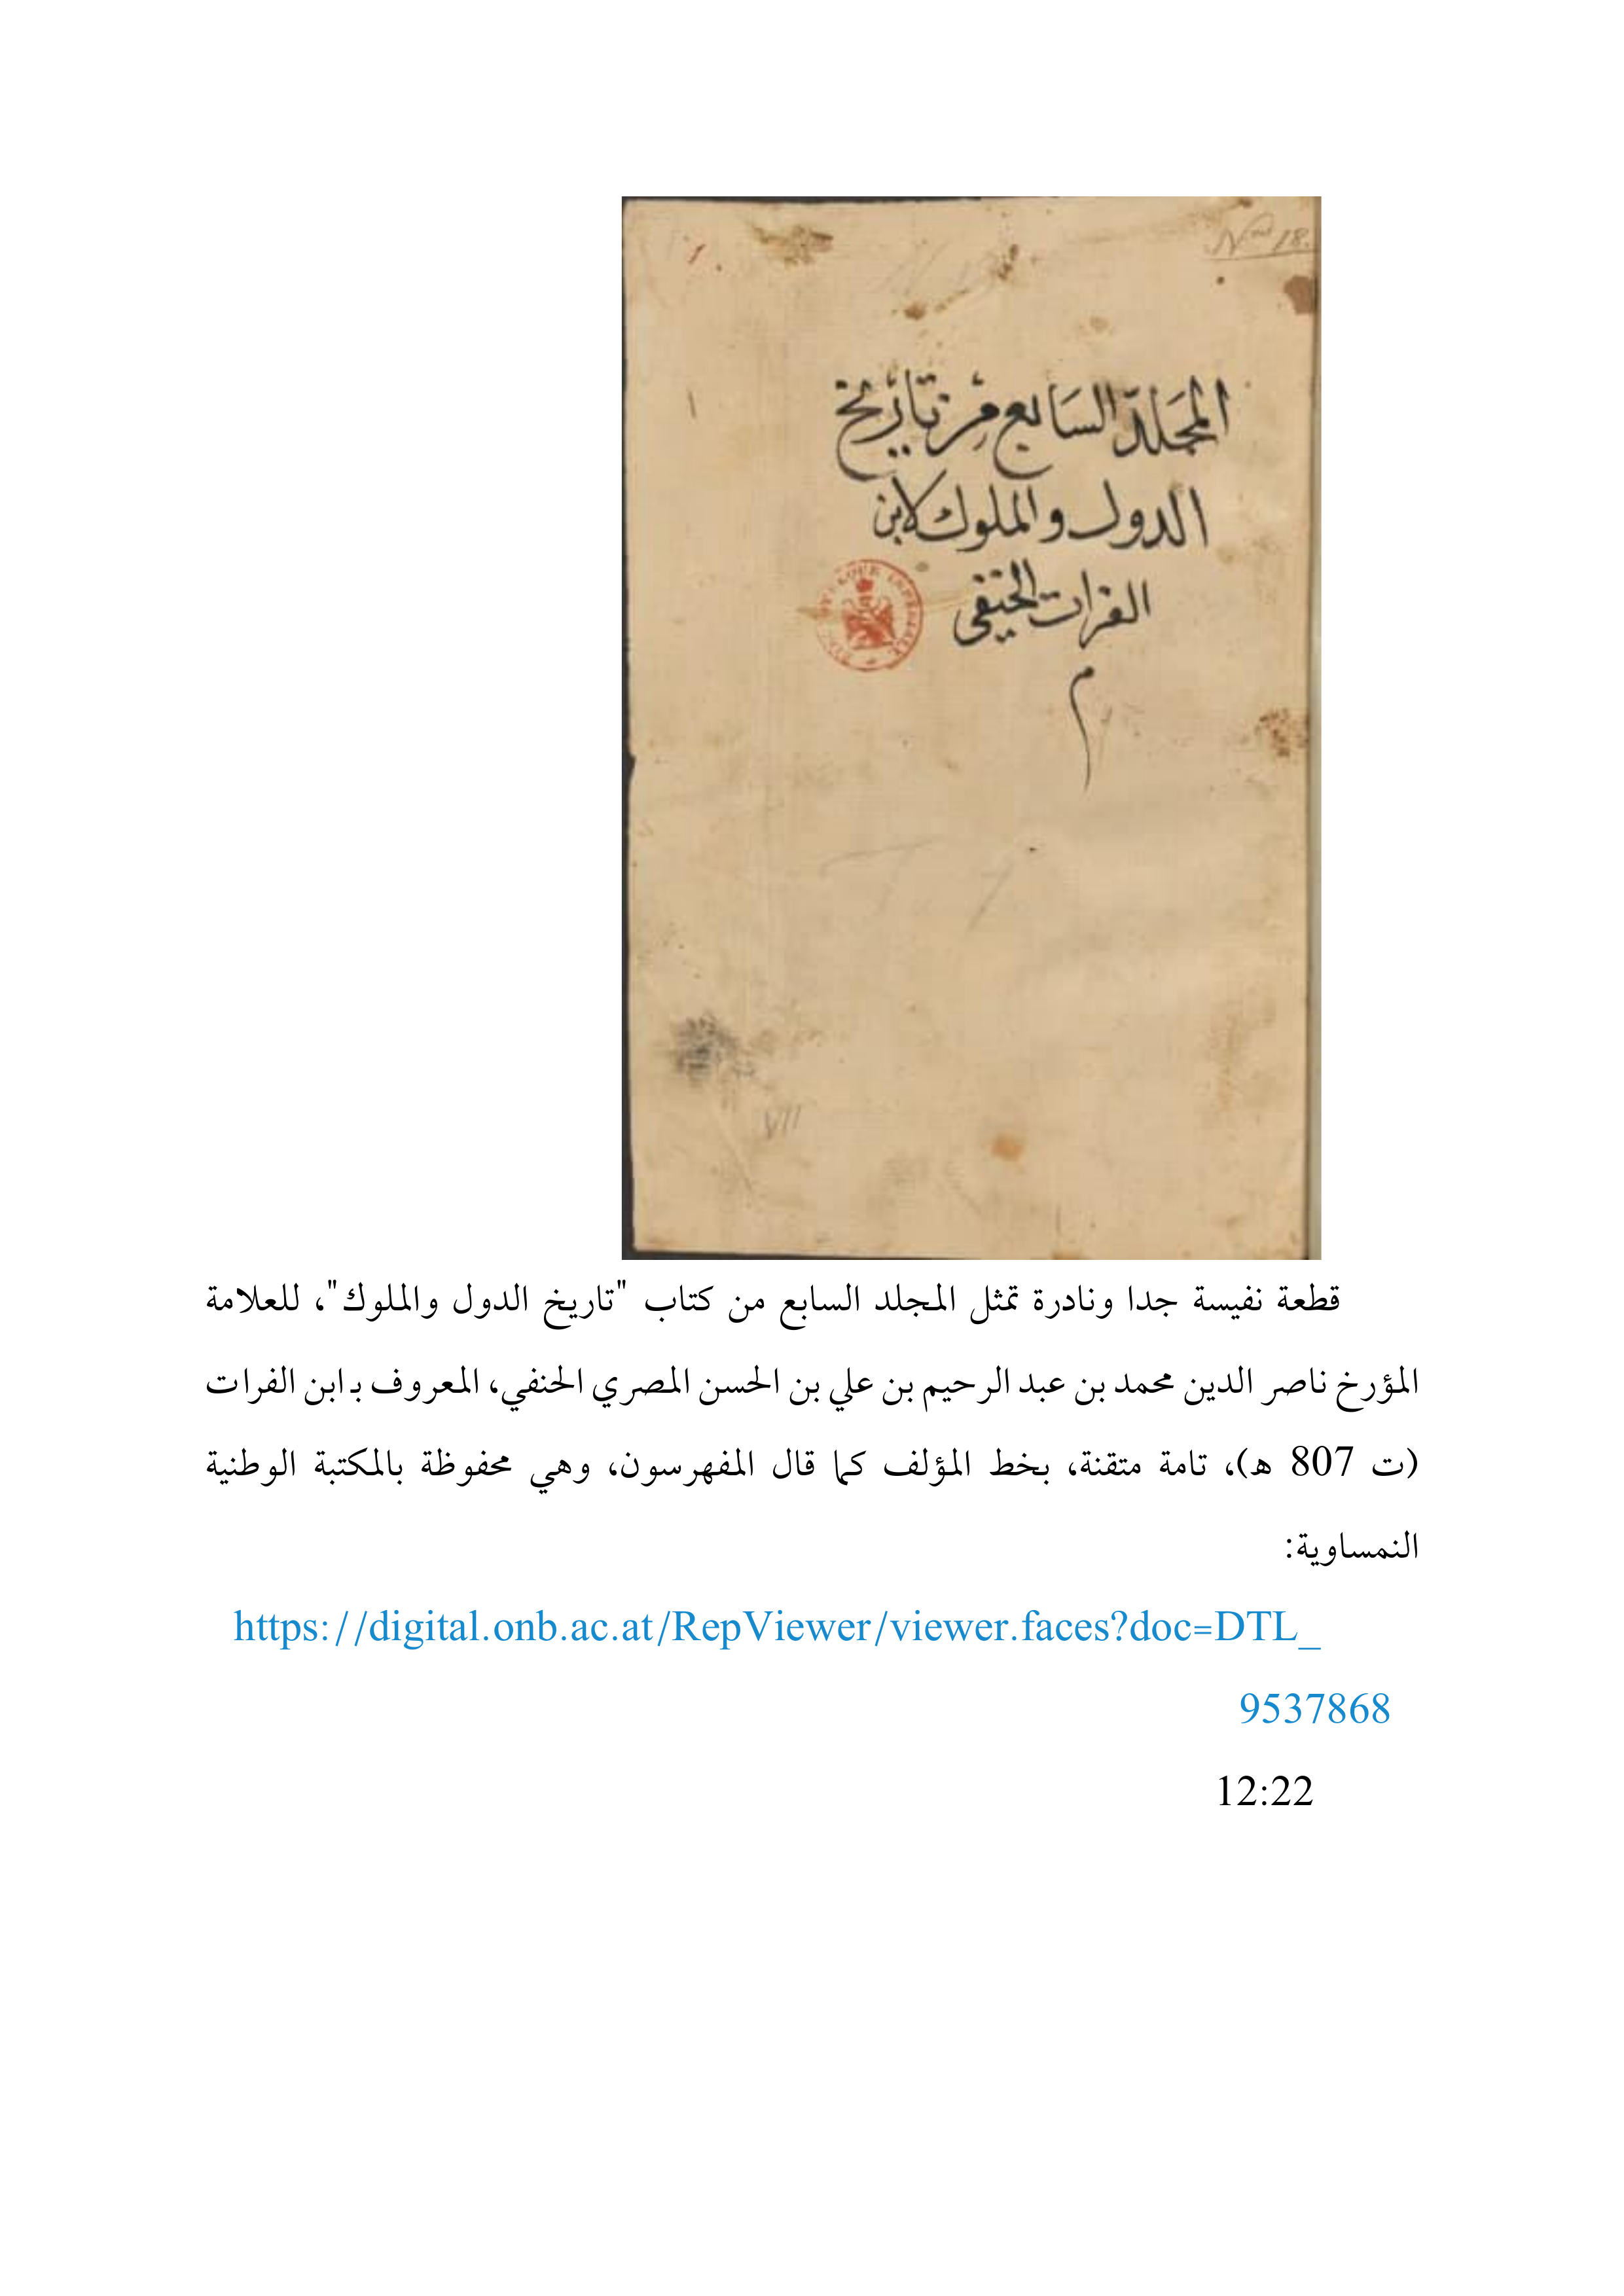 Nro 18.
المجَلدّ السَابع مِنْ تَارْيخ
الدول والملوك لابن
الفرات الحنيفى
م
VII
قطعة نفيسة جدا ونادرة تمثل المجلد السابع من كتاب "تاريخ الدول والملوك"، للعلامة
المؤرخ ناصر الدين محمد بن عبد الرحيم بن علي بن الحسن المصري الحنفي، المعروف بـ ابن الفرات
(ت 807 هـ)، تامة متقنة، بخط المؤلف كما قال المفهرسون، وهي محفوظة بالمكتبة الوطنية
النمساوية:
https://digital.onb.ac.at/RepViewer/viewer.faces?doc=DTL_
9537868
12:22